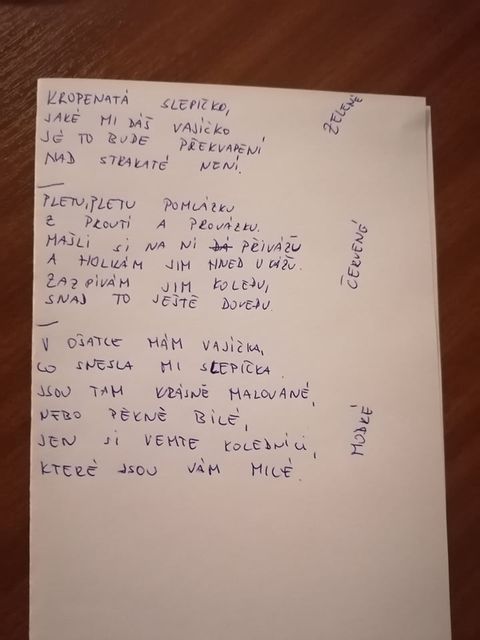 KROPENATÁ SLEPIČKO,
JAKÉ MI DÁŠ VAJÍČKO
JÉ TO BUDE PŘEKVAPENÍ
NAD STRAKATÉ NENÍ.
ZELENÉ
PLETU, PLETU POMLÁZKU
Z PROUTÍ A PROVÁZKU.
MAŠLI SI NA NI DÁ PŘIVÁŽU
A HOLKÁM JIM HNED UKÁŽU.
ZAZPÍVÁM JIM KOLEDU,
SNAD TO JEŠTĚ DOVEDU.
ČERVENÉ
V OŠATCE MÁM VAJÍČKA,
CO SNESLA MI SLEPIČKA.
JSOU TAM KRÁSNĚ MALOVANÉ,
NEBO PĚKNĚ BÍLÉ,
JEN SI VEMTE KOLEDNÍCI,
KTERÉ JSOU VÁM MILÉ.
MODRÉ